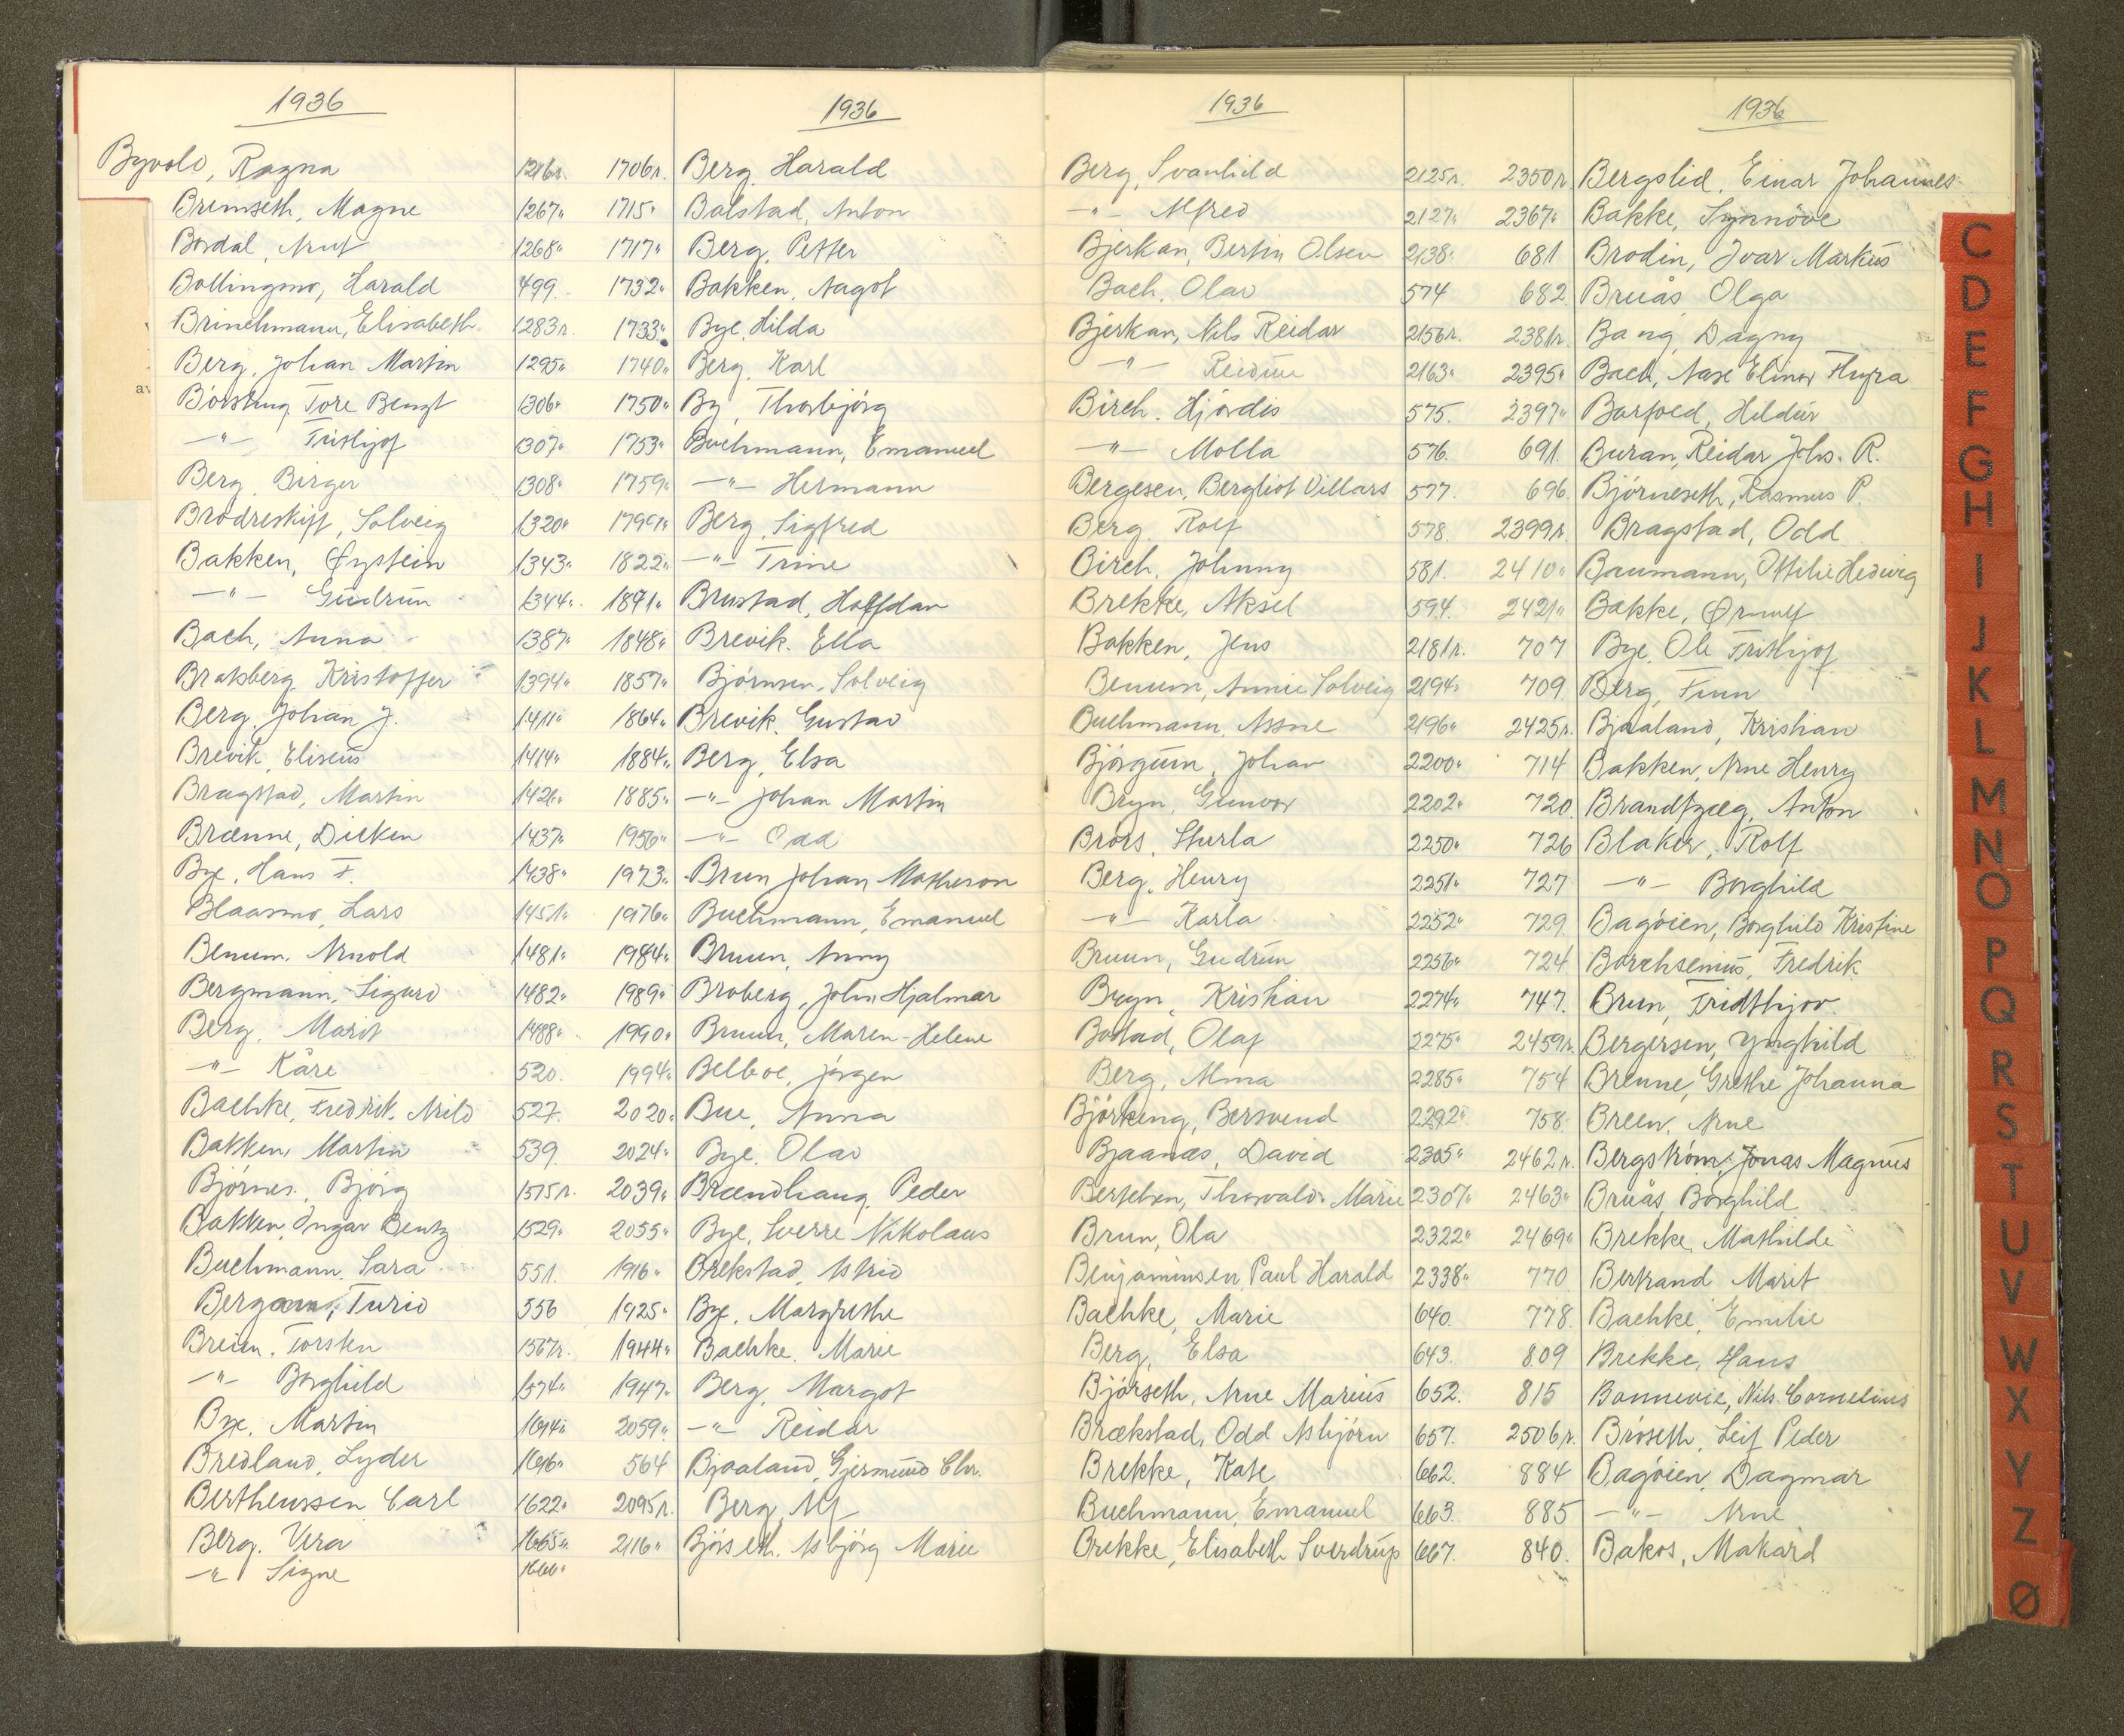 1936
Byvold, Ragna 1216r.
Brimseth, Magne 1267"
Bordal, Knut 1268"
Bollingmo, Harald 499.
Brinchmann, Elisabeth 1283r.
Berg, Johan Martin 1295"
Börsting, Tore Bengt 1306"
—"— Frithjof 1307"
Berg, Birger 1308"
Brodreskift, Solveig 1320"
Bakken, Øystein 1343"
—"— Gudrun 1344"
Bach, Anna 1387"
Bratsberg, Kristoffer 1394"
Berg, Johan J. 1411"
Brevik, Eliseus 1414"
Bragstad, Martin 1426"
Brænne, Dicken 1437"
Bye, Hans F. 1438"
Blaasmo, Lars 1451"
Benum, Arnold 1481"
Bergmann, Sigurd 1482"
Berg, Marit 1488"
—"— Kåre 520.
Bachke, Fredrik Arild 527.
Bakken, Martin 539.
Björnes, Björg 1515r.
Bakken, Ingar Bentz 1529"
Buchmann, Sara 551.
Turid 556
Breim, Torsten 1567r.
—"— Borghild 1574"
Bye, Martin 1614"
Bredland, Lyder 1616"
Bertheussen Carl 1622"
Berg, Vera 1665"
—"— Signe 1666"
1936
1706r. Berg, Harald
1715" Balstad, Anton
1717" Berg, Petter
1732" Bakken, Aagot
1733" Bye, Hilda
1740" Berg, Karl
1750" By, Thorbjörg
1753" Buchmann, Emanuel
1759" —"— Hermann
1799" Berg, Sigfred
1822" —"— Trine
1841" Brustad, Halfdan
1848" Brevik, Ella
1857" Björnsen, Solveig
1864" Brevik, Gustav
1884" Berg, Elsa
1885" —"— Johan Martin
1956" —"— Odd
1973" Brun Johan Matheson
1976" Buchmann, Emanuel
1984" Bruun, Anny
1989" Broberg, John Hjalmar
1990" Bruun, Maren-Helene
1994" Belboe, Jörgen
2020" Bue, Anna
2024" Bye, Olav
2039" Brændhaug, Peder
2055" Bye, Sverre Nikolaus
1916" Brekstad, Astrid
1925" Bye, Margrethe
1944" Bachke, Marie
1947" Berg, Margot
2059" —"— Reidar
564 Bjaaland, Gjermund Chr.
2095r. Berg, Alf
2116" Björseth, Asbjörg Marie
1936
Berg, Svanhild 2125r.
—"— Alfred 2127"
Bjerkan, Bertin Olsen 2138"
Bach, Olav 574
Bjerkan, Nils Reidar 2156r.
—"— Reidun 2163"
Birch, Hjördis 575.
—"— Molla 576.
Bergesen, Bergliot Villars 577.
Berg, Rolf 578.
Birch, Johnny 581.
Brekke, Aksel 594.
Bakken, Jens 2181r.
Benum, Annie Solveig 2194"
Buchmann, Assne 2196"
Björgum, Johan 2200"
Bryn, Gunvor 2202"
Brors, Sturla 2250"
Berg, Henry 2251"
—"— Karla 2252"
Bruun, Gudrun 2256"
Bryn, Kristian 2274"
Bostad, Olaf 2275"
Berg, Alma 2285"
Björking, Bersvend 2292"
Bjaanæs, David 2305"
Marie 2307"
Brun, Ola 2322"
Benjaminsen Paul Harald 2338"
Bachke, Marie 640.
Berg, Elsa 643.
Björseth, Arne Marius 652.
Brækstad, Odd Asbjörn 657.
Brekke, Kate 662.
Buchmann, Emanuel 663.
Brekke, Elisabeth Sverdrup 667.
1936
2350r. Bergslid, Einar Johannes
2367" Bakke, Synnöve
681 Brodin, Ivar Markus
682 Bruås Olga
2381r. Bang, Dagny
2395" Bach, Aase Elinor
2397" Barfoed, Hildur
691. Buran, Reidar Johs. R.
696. Björneseth, Rasmus P.
2399r. Bragstad, Odd
2410" Baumann, Ottilie Hedwig
2421" Bakke, Ørnulf
707 Bye, Ole Frithjof
709. Berg, Finn
2425r. Bjaaland, Kristian
714 Bakken, Arne Henry
720. Brandtzæg, Anton
726 Blaker, Rolf
727 —"— Borghild
729. Bagöien, Borghild Kristine
724. Borchsenius, Fredrik
747. Brun, Fridthjov
2459r. Bergersen, Ynghild
754 Brenne, Grethe Johanna
758. Breen, Arne
2462r. Bergström, Jonas Magnus
2463" Bruås, Borghild
2469" Brekke, Mathilde
770 Bertrand Marit
778. Bachke, Emilie
809 Brekke, Hans
815 Bonnevie, Nils Cornelius
2506r. Bröseth, Leif Peder
884 Bagöien, Dagmar
885 —"— Arne
840. Bakos, Makard
C
D
E
F
G
H
I
J
K
L
M
N
O
P
Q
R
S
T
U
V
W
X
Y
Z
Ø